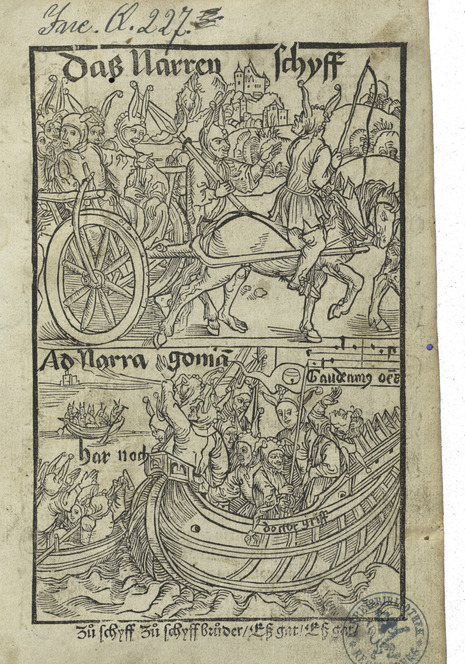 Inc. Q. 227.
Daß Narren schyff
Ad Narragoniā
Gaudeamꝰ oēs
har noch
doctor griff
Zů schyff Zů schyff brůder / Eß gat / Eß gat